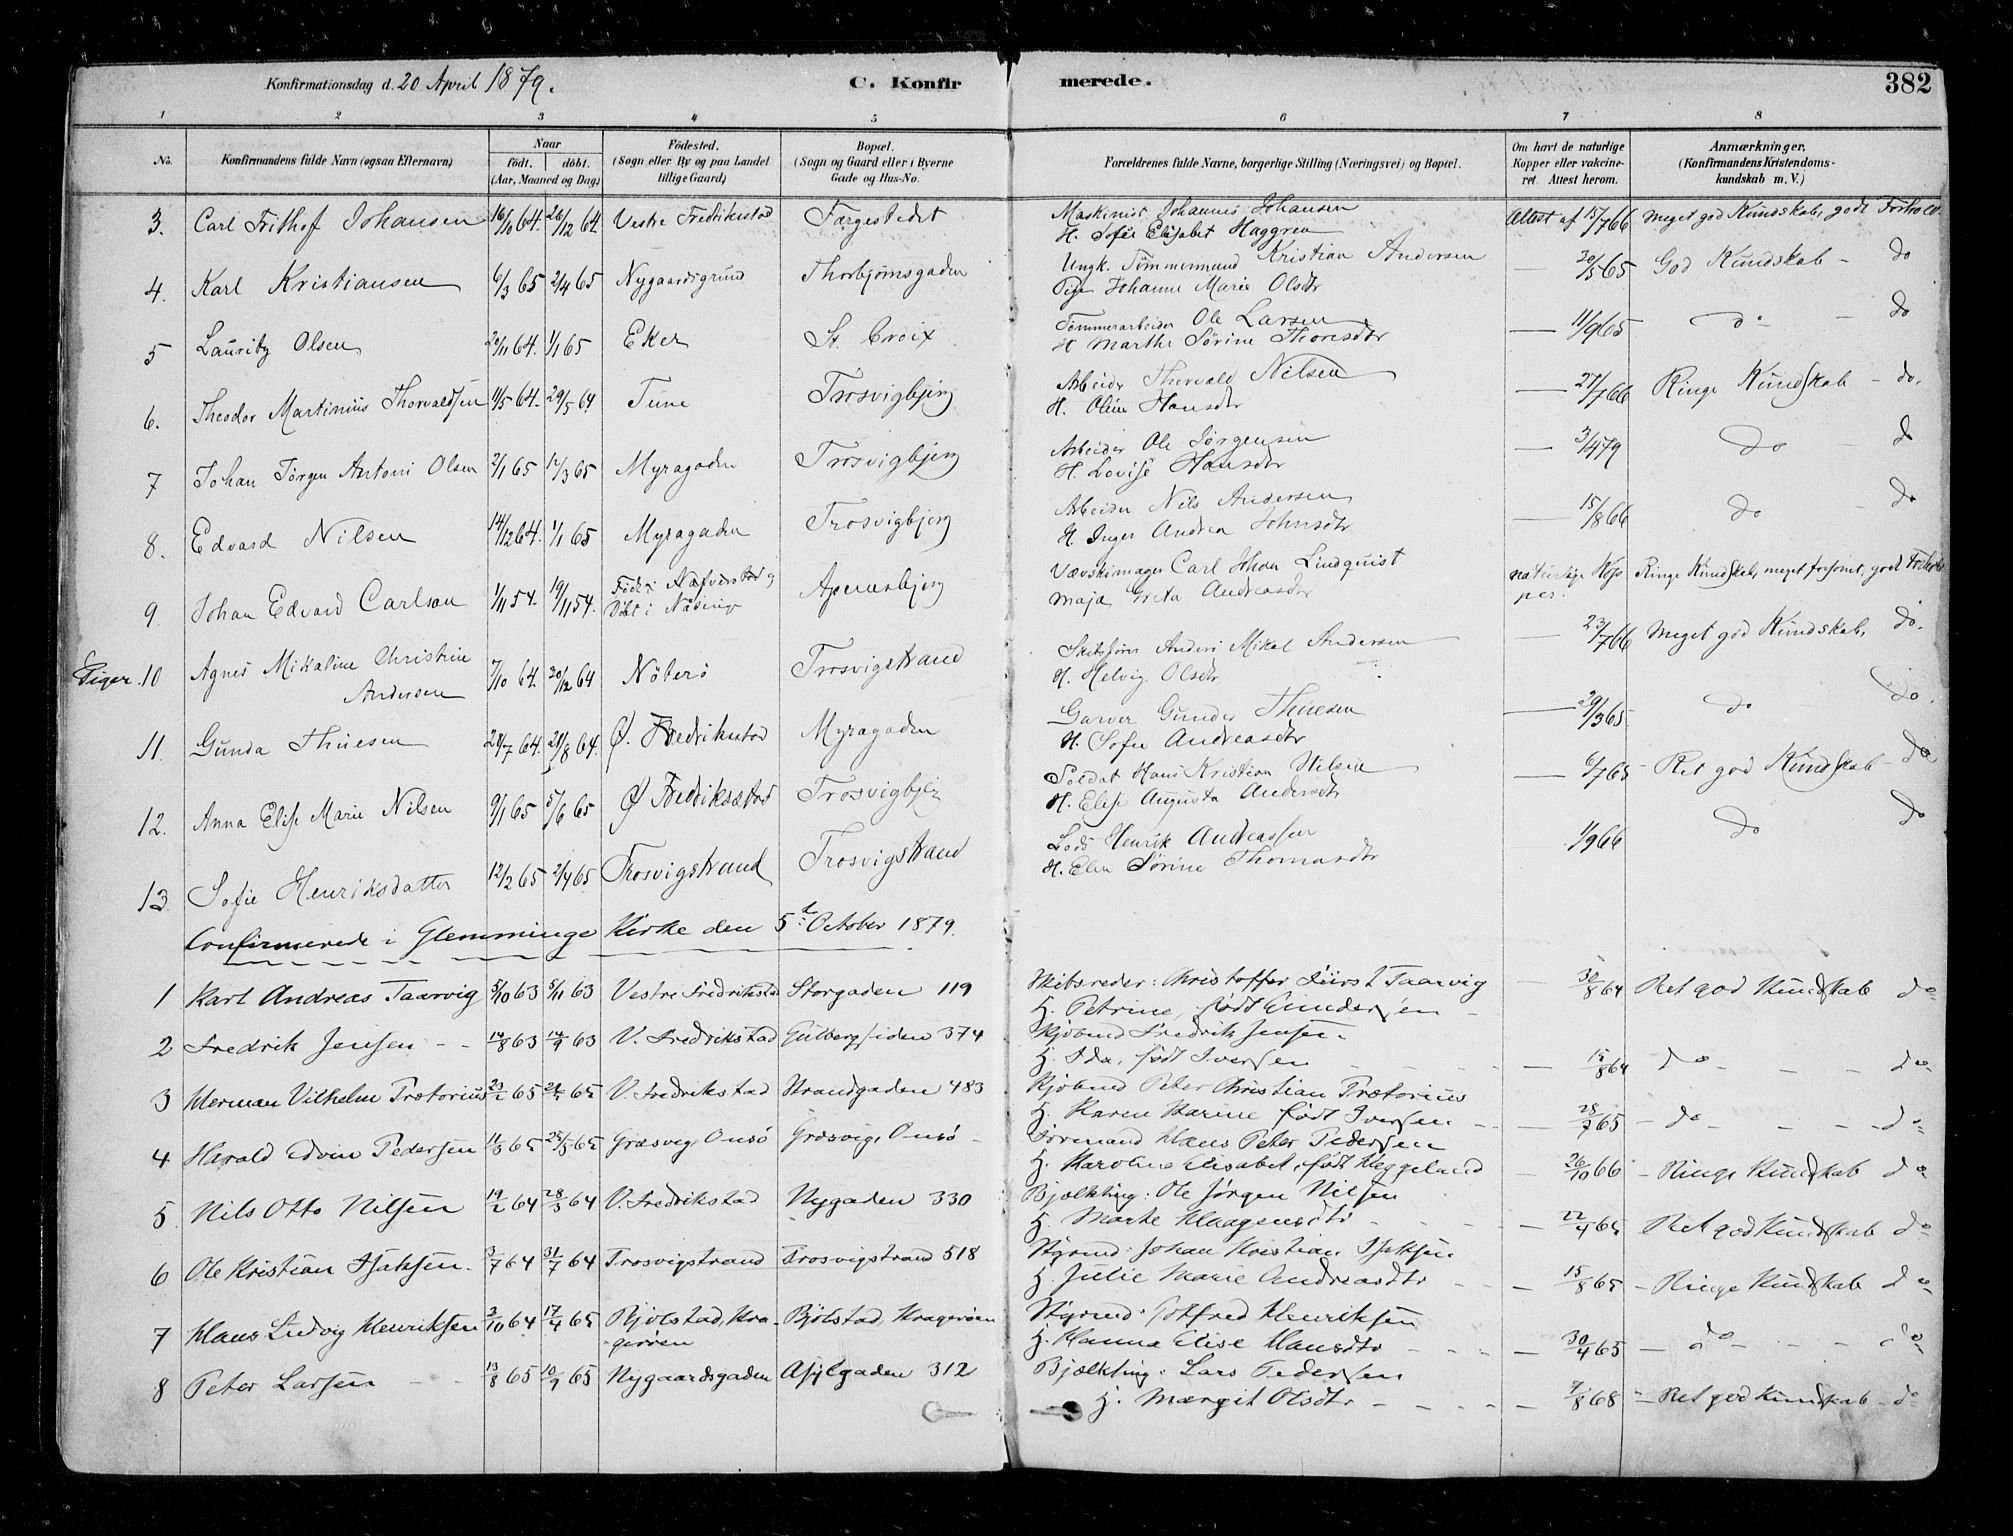 Konfirmationsdag d. 20 April 1879.
C. Konfirmerede.
382
1 2 3 4 5 6 7 8
No.
Konfirmandens fulde Navn (ogsaa Efternavn)
Naar
födt. döbt.
(Aar, Maaned og Dag)
Födested.
(Sogn eller By og paa Landet
tillige Gaard)
Bopæl.
(Sogn og Gaard eller i Byerne
Gade og Hus-No.
Forældrenes fulde Navne, borgerlige Stilling (Næringsvei) og Bopæl.
Om havt de naturlige
Kopper eller vakcine-
ret. Attest herom.
Anmærkninger.
(Konfirmandens Kristendoms-
kundskab m. V.)
3. Carl Frithof Johansen 16/10 64. 26/12 64. Vestre Fredrikstad Færgestedet Maskinist Johannes Johansen Attest af 15/7 66 Meget god Kundskab, godt Forhold.
H. Sofie Elisabet Haggren
4. Karl Kristiansen 6/3 65 2/4 65 Nygaardsgrund Thorbjørnsgaden Ungk. Tømmermand Kristian Andersen — 30/5 65 God Kundskab - do
Pige Johanne Marie Olsdtr
5 Lauritz Olsen 20/11 64. 1/1 65 Eker St. Croix Tømmerarbeider Ole Larsen — 11/9 65 do - do
H Marthe Sørine Thoresdtr
6. Theodor Martinius Thorvaldsen 11/5 64. 29/5 64 Tune Trosvigbjerg Arbeider Thorvald Nilsen — 27/7 66 Ringe Kundskab - do.
H. Oline Hansdtr
7 Johan Jørgen Antoni Olsen 2/1 65 12/3 65 Myragaden Trosvigbjerg Arbeider Ole Jørgensen — 3/4 79 do - do
H. Lovise Hansdtr
8. Edvard Nilsen 14/12 64. 1/1 65 Myragaden Trosvigbjerg Arbeider Nils Andersen — 15/8 66 do do
H. Inger Andrea Johnsdtr
9. Johan Edvard Carlson 1/11 54. 19/11 54. Født i
Døbt i Væveskimager Carl Johan Lindquist naturlige Kop Ringe Kundskab, meget forsømt, godt Forhold
Maja Greta Andreasdtr per.
Piger. 10 Agnes Mikaline Christine 7/10 64. 20/12 64 Nöterö Trosvigstrand Skibsfører Anders Mikal Andersen — 23/7 66 Meget god Kundskab, do.
Andersen H. Helvig Olsdtr
11. Gunda Thuesen 28/7 64. 21/8 64. Ø. Fredrikstad Myragaden Garver Gunder Thuesen — 29/3 65 do do
H. Sofie Andreasdtr
12. Anna Elise Marie Nilsen 9/1 65 5/6 65 Ø Fredrikstad Trosvigbjerg Soldat Hans Kristian Nilsen — 6/7 65 - Ret god Kundskab - do
H. Elise Augusta Andersdtr
13 Sofie Henriksdatter 12/2 65 2/4 65 Trosvigstrand Trosvigstrand Lods Henrik Andreassen 1/9 66 do do
H. Elen Sørine Thomasdtr
Confirmerede i Glemminge Kirke den 5te October 1879.
1 Karl Andreas Taarvig 5/10 63 5/11 63 Vestre Fredrikstad Storgaden 119 Skibsreder: Kristoffer Fürst Taarvig — 30/8 64 Ret god Kundskab do
H. Petrine, født Gundersen
2 Fredrik Jensen - - 14/8 63 14/9 63 V. Fredrikstad Gulbergsiden 374 Kjøbmd Fredrik Jensen.
H. Ida, født Iversen — 15/8 64 do - - - do
3 Herman Vilhelm Prætorius 23/2 65 65 V. Fredrikstad Strandgaden 483 Kjøbmd Peter Christian Prætorius
H. Karen Hanne født Iversen — 28/7 65 - do - - - do
4 Harald Edvin Pedersen 11/3 65 25/5 65 Græsvig, Onsö Græsvig, Onsö - Formand Hans Peter Pedersen
H. Karoline Elisabet, født Heggelund — 26/10 66 - Ringe Kundskab do
5 Nils Otto Nilsen 19/2 64 28/3 64 V. Fredrikstad Nygaden 330 Bjælkting: Ole Jørgen Nilsen
H. Marte Haagensdtr — 22/4 65 Ret god Kundskab do
6 Ole Kristian Isaksen. 3/7 64 31/7 64 Trosvigstrand Trosvigstrand 518 Styrmd: Johan Kristian Isaksen
H. Julie Marie Andreasdtr — 15/8 65 - Ringe Kundskab do
7 Hans Ludvig Henriksen 3/10 64 17/4 65 Bjölstad, Kra- Bjölstad, Kragerøen Styrmd: Gotfred Henriksen
gerøen H. Hanna Elise Hansdtr — 30/4 65 - do - - - do
8 Peter Larsen - - 13/8 65 10/9 65 Nygaardsgaden Asylgaden 312 Bjælkting: Lars Pedersen
H. Margit Olsdtr — 7/8 68 - Ret god Kundskab - do